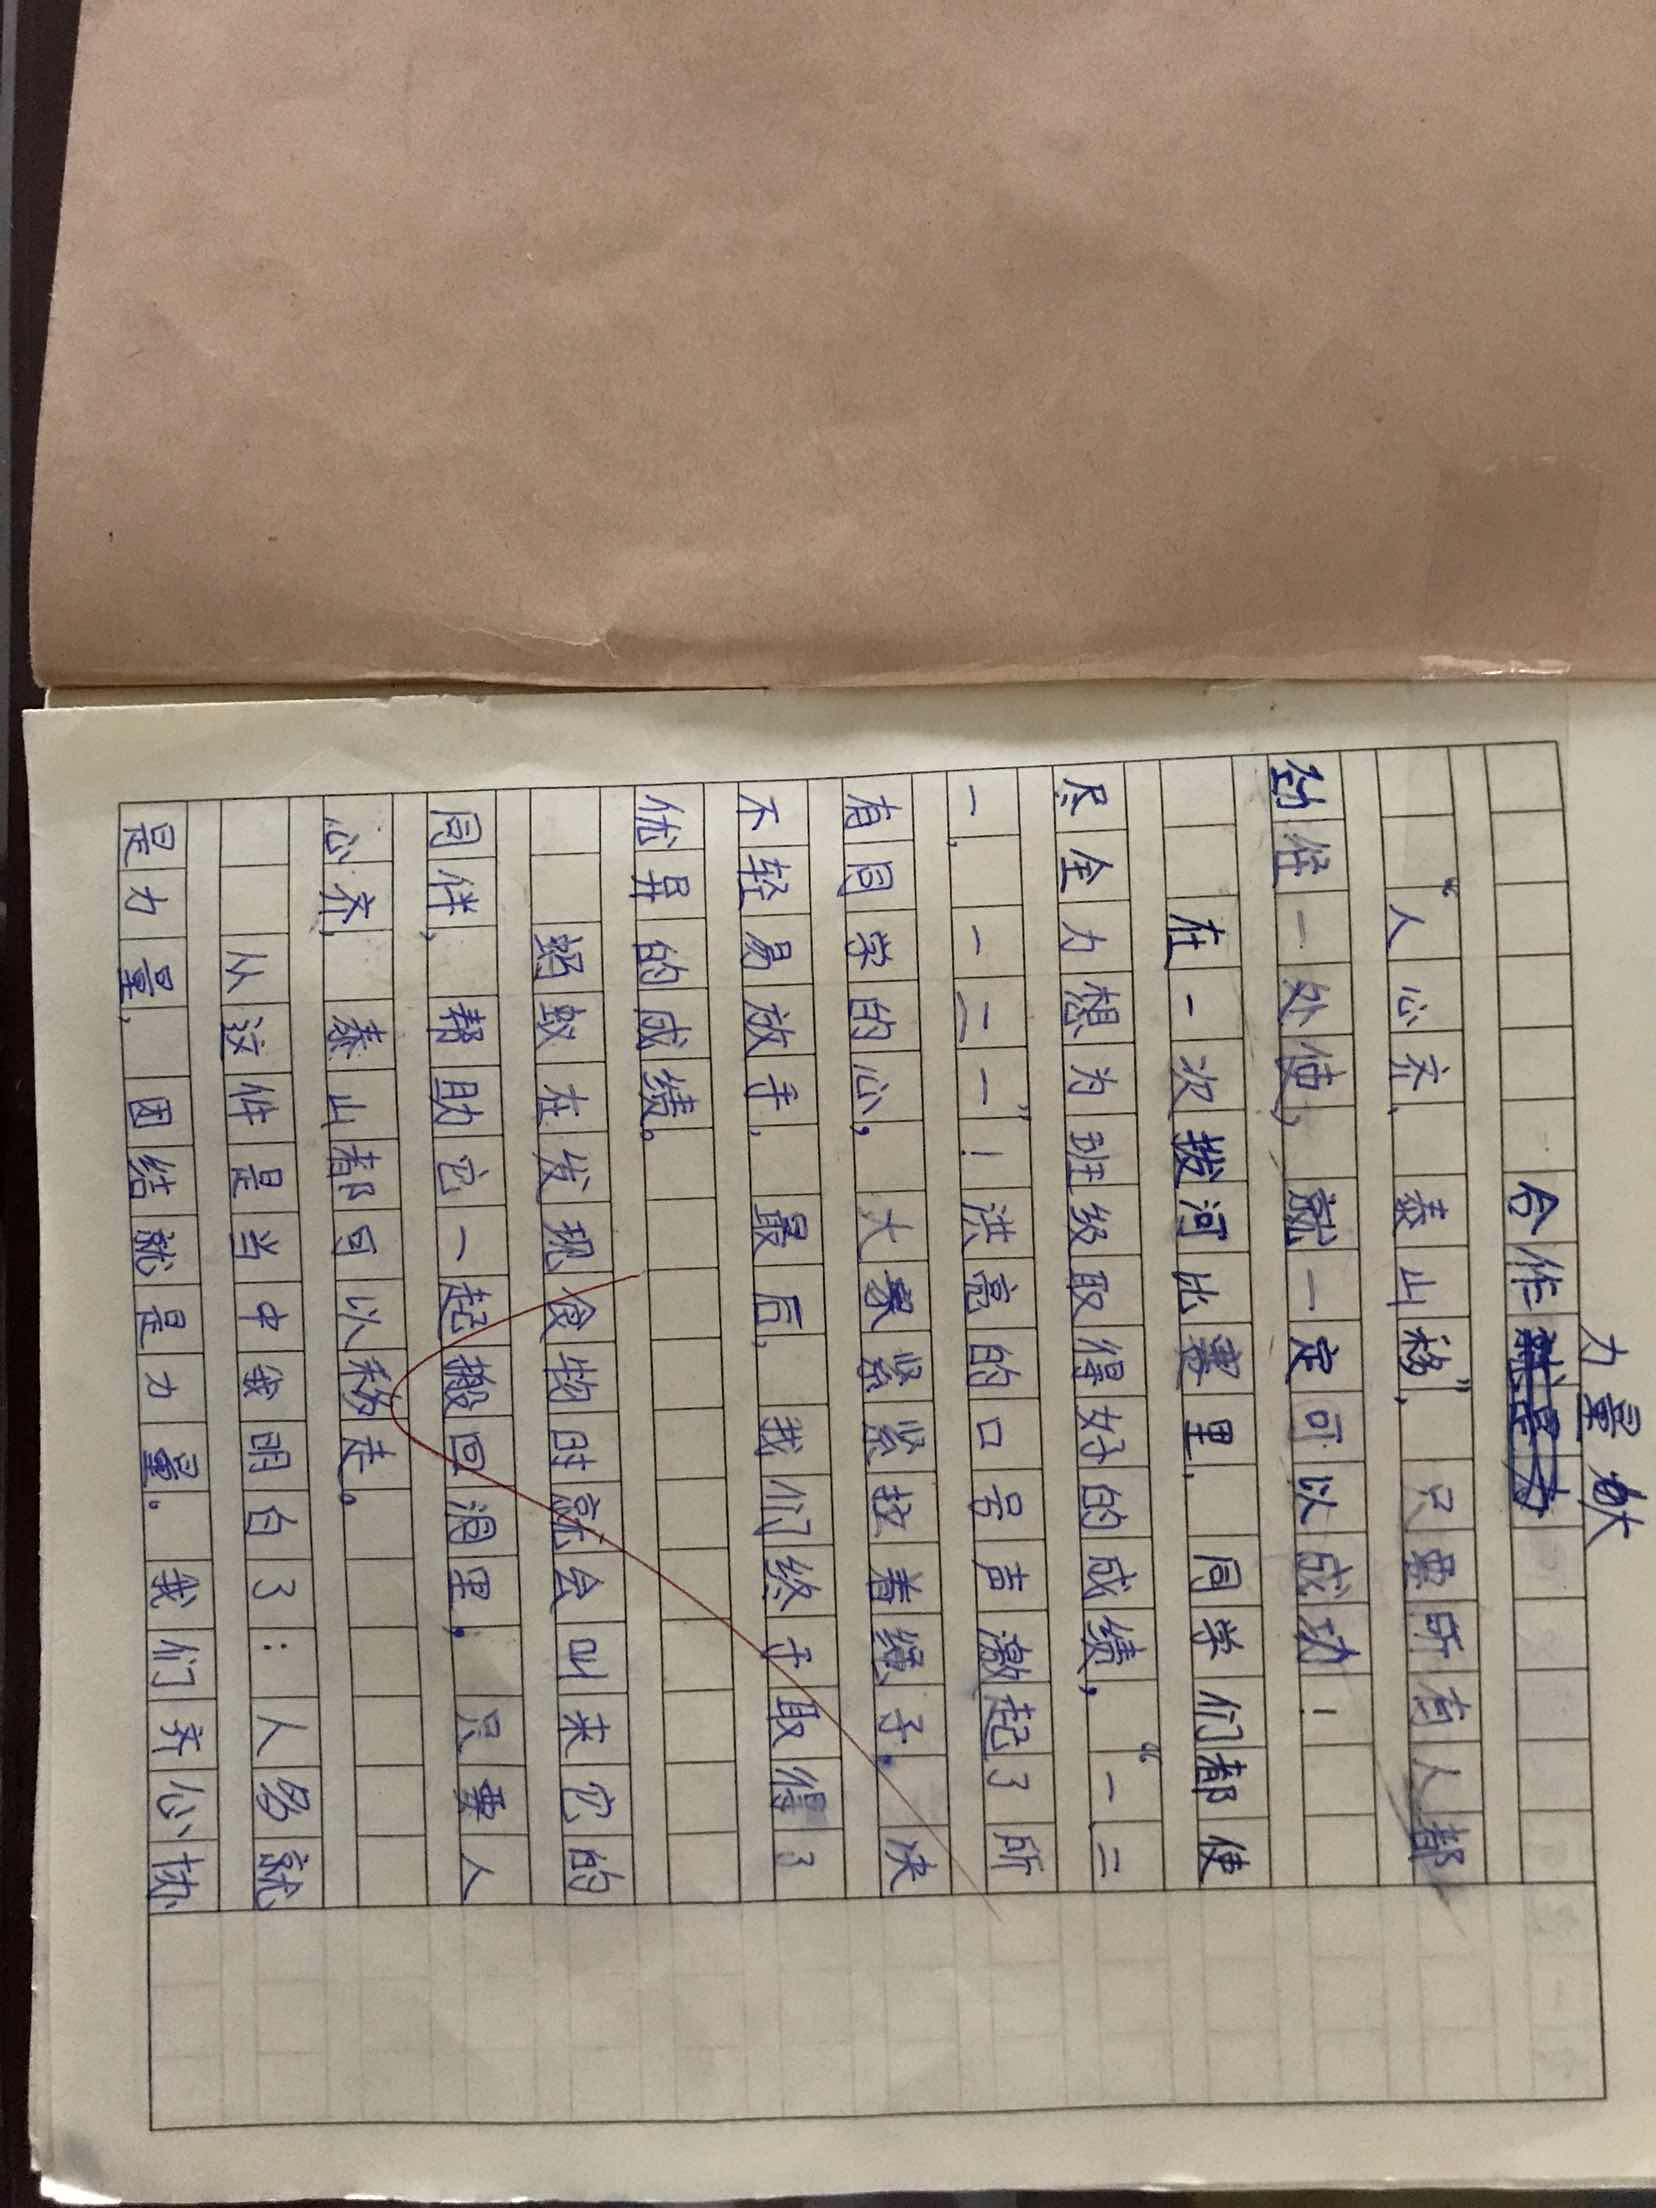 合作力量大
“人心齐,泰山移”,只要所有人都
劲往一处使,就一定可以成功!
在一次拔河比赛里,同学们都使
尽全力想为班级取得好的成绩,“一二
一,一二一”!洪亮的口号声激起了所
有同学的心,大家紧紧拔着绳子,决
不轻易放手,最后,我们终于取得了
优异的成绩。
蚂蚁在发现食物时就会叫来它的
同伴,帮助它一起搬回洞里,只要人
心齐,泰山都可以移走。
从这件是当中我明白了:人多就
是力量,团结就是力量。我们齐心协